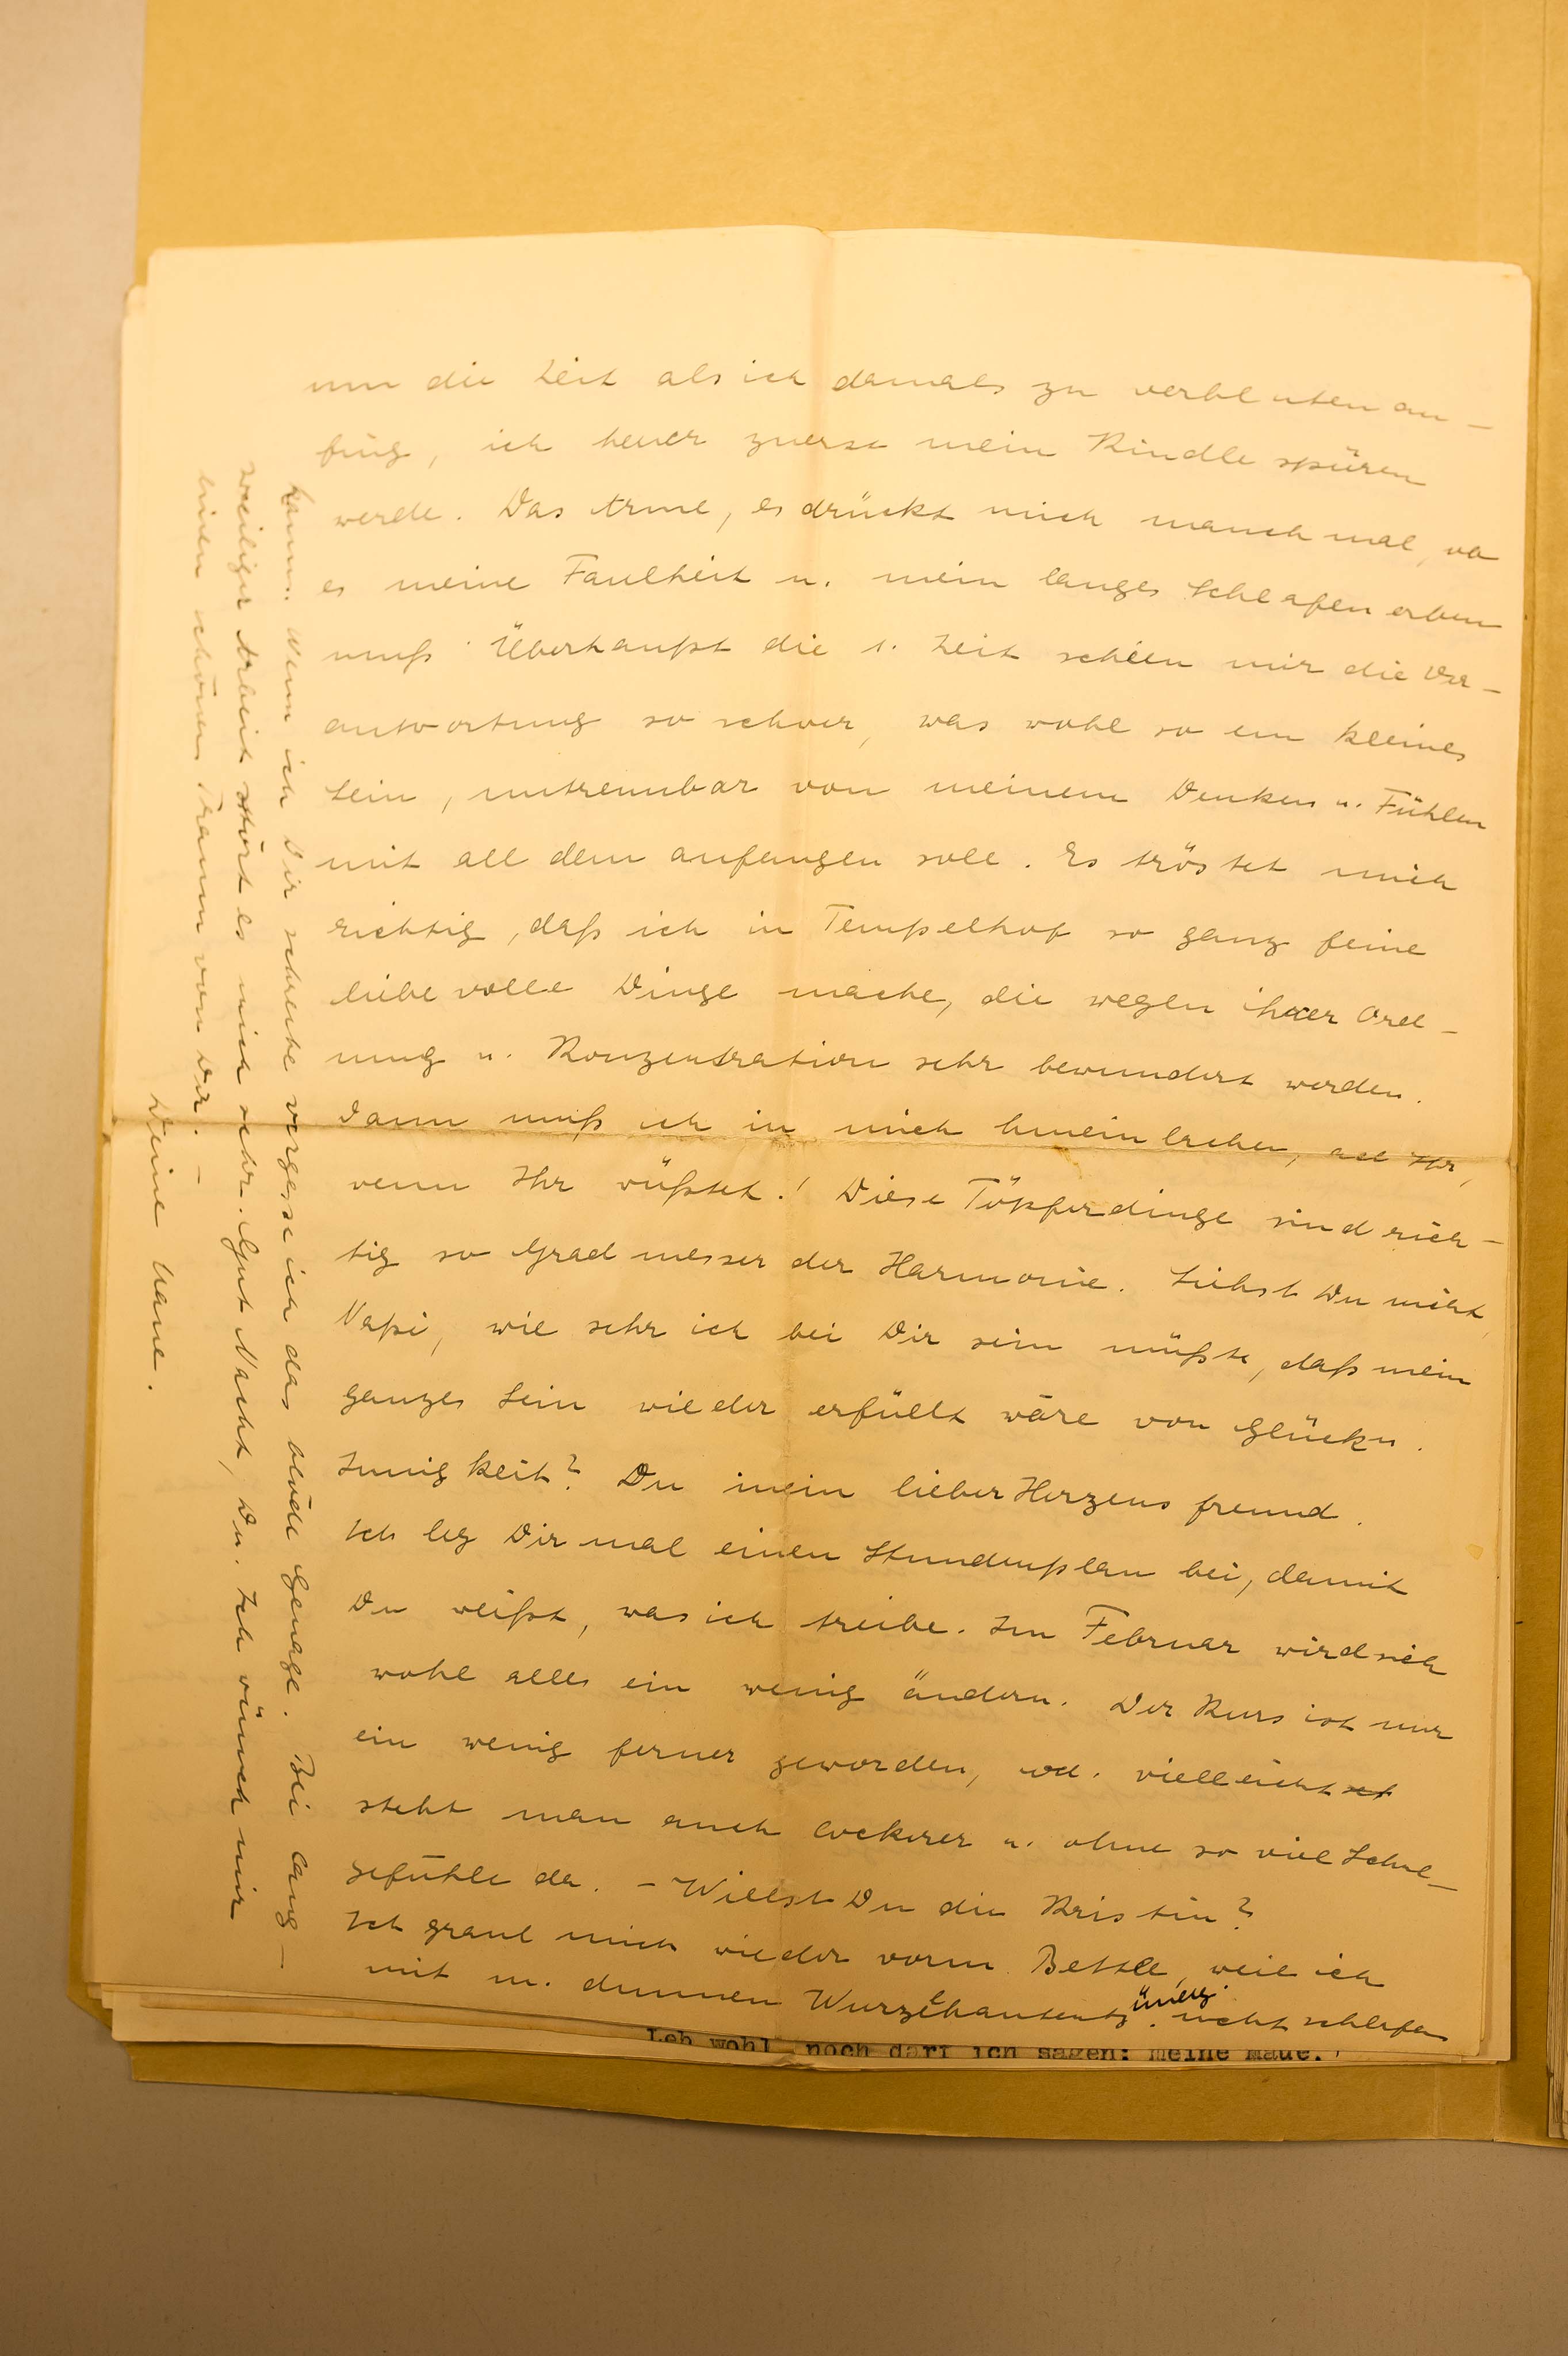 um die Zeit als ich damals zu verbluten an-
fing, ich heuer zuerst mein Kindle spüren
werde. Das Arme, es drückt mich manchmal, ob
es meine Faulheit u. mein langes Schlafen erben
muß. Überhaupt die 1. Zeit schien mir die Ver-
antwortung so schwer, was wohl so ein kleines
Sein, untrennbar von meinem Denken u. Fühlen
mit all dem anfangen soll. Es tröstet mich
richtig, daß ich in Tempelhof so ganz feine
liebevolle Dinge mache, die wegen ihrer Ord-
nung u. Konzentration sehr bewundert werden.
Dann muß ich in mich hinein lachen, all Ihr,
wenn Ihr wüßtet! Diese Töpferdinge sind rich-
tig so Gradmesser der Harmonie. Siehst Du nicht,
Napi, wie sehr ich bei Dir sein müßte, daß mein
ganzes Sein wieder erfüllt wäre von Glück u.
Innigkeit? Du mein lieber Herzensfreund.
Ich leg Dir mal einen Stundenplan bei, damit
Du weißt, was ich treibe. Im Februar wird sich
wohl alles ein wenig ändern. Der Kurs ist nur
ein wenig ferner geworden, od. vielleicht
steht man auch lockerer u. ohne so viel Schul-
gefühle da. – Willst Du die Kristin?
Ich graul mich wieder vorm Bettle, weil ich
mit m. dünnen nicht schlafen
kann. Wenn ich Dir schreibe vergesse ich das blöde Genage. Bei lang-
weiliger Arbeit stört es mich sehr. Gut Nacht, Du. Ich wünsch mir
einen schönen Traum von Dir. –
Deine Hane.
Leb wohl, noch darf ich sagen: meine Maue.